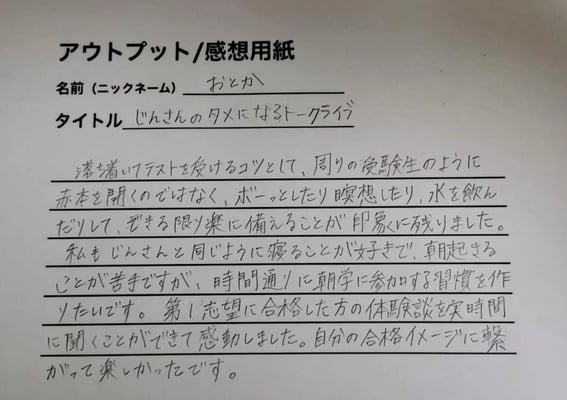 アウトプット/感想用紙
名前（ニックネーム） おとか
タイトル じんさんのタメになるトークライブ
落ち着いてテストを受けるコツとして、周りの受験生のように
赤本を開くのではなく、ボーっとしたり瞑想したり、水を飲ん
だりして、できる限り楽に備えることが印象に残りました。
私もじんさんと同じように寝ることが好きで、朝起きる
ことが苦手ですが、時間通りに朝学に参加する習慣を作
りたいです。第1志望に合格した方の体験談を実時間
に聞くことができて感動しました。自分の合格イメージに繋
がって楽しかったです。